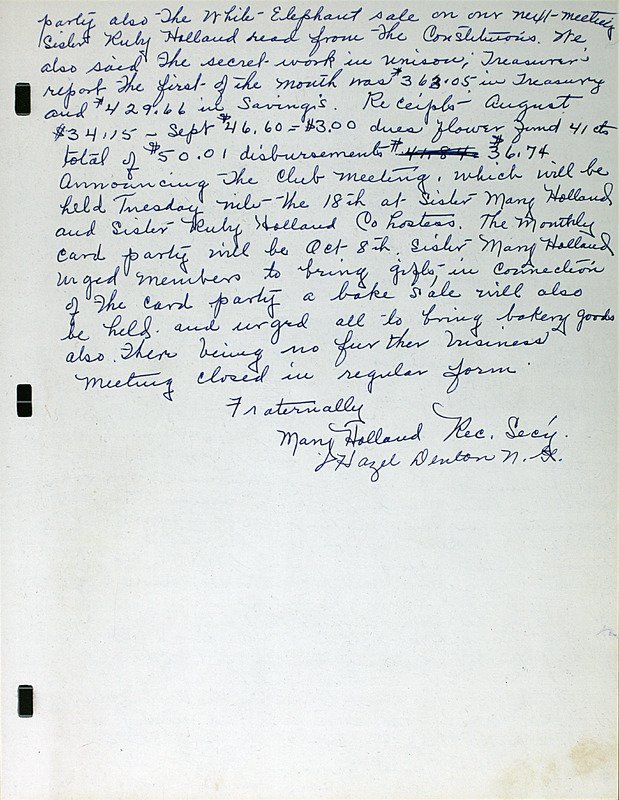 party also The White Elephant sale on our next meeting
Sister Ruby Holland read from The Constitutions. We
also said The secret work in unison, Treasurer's
report The first of the month was $363.05 in Treasury
and $429.66 in Savings. Receipts August
$34.15 - Sept $46.60 = $3.00 dues flower fund 41 cts
total of $50.01 disbursements $41.84 $36.74
Announcing The Club meeting, which will be
held Tuesday nite The 18th at Sister Mary Holland
and Sister Ruby Holland Co hostess. The Monthly
card party will be Oct 8th. Sister Mary Holland
urged members to bring gifts, in connection
of The card party a bake sale will also
be held. and urged all to bring bakery goods
also. There being no further business
Meeting closed in regular form.
Fraternally
Mary Holland Rec. Sec'y.
Hazel Denton N. G.